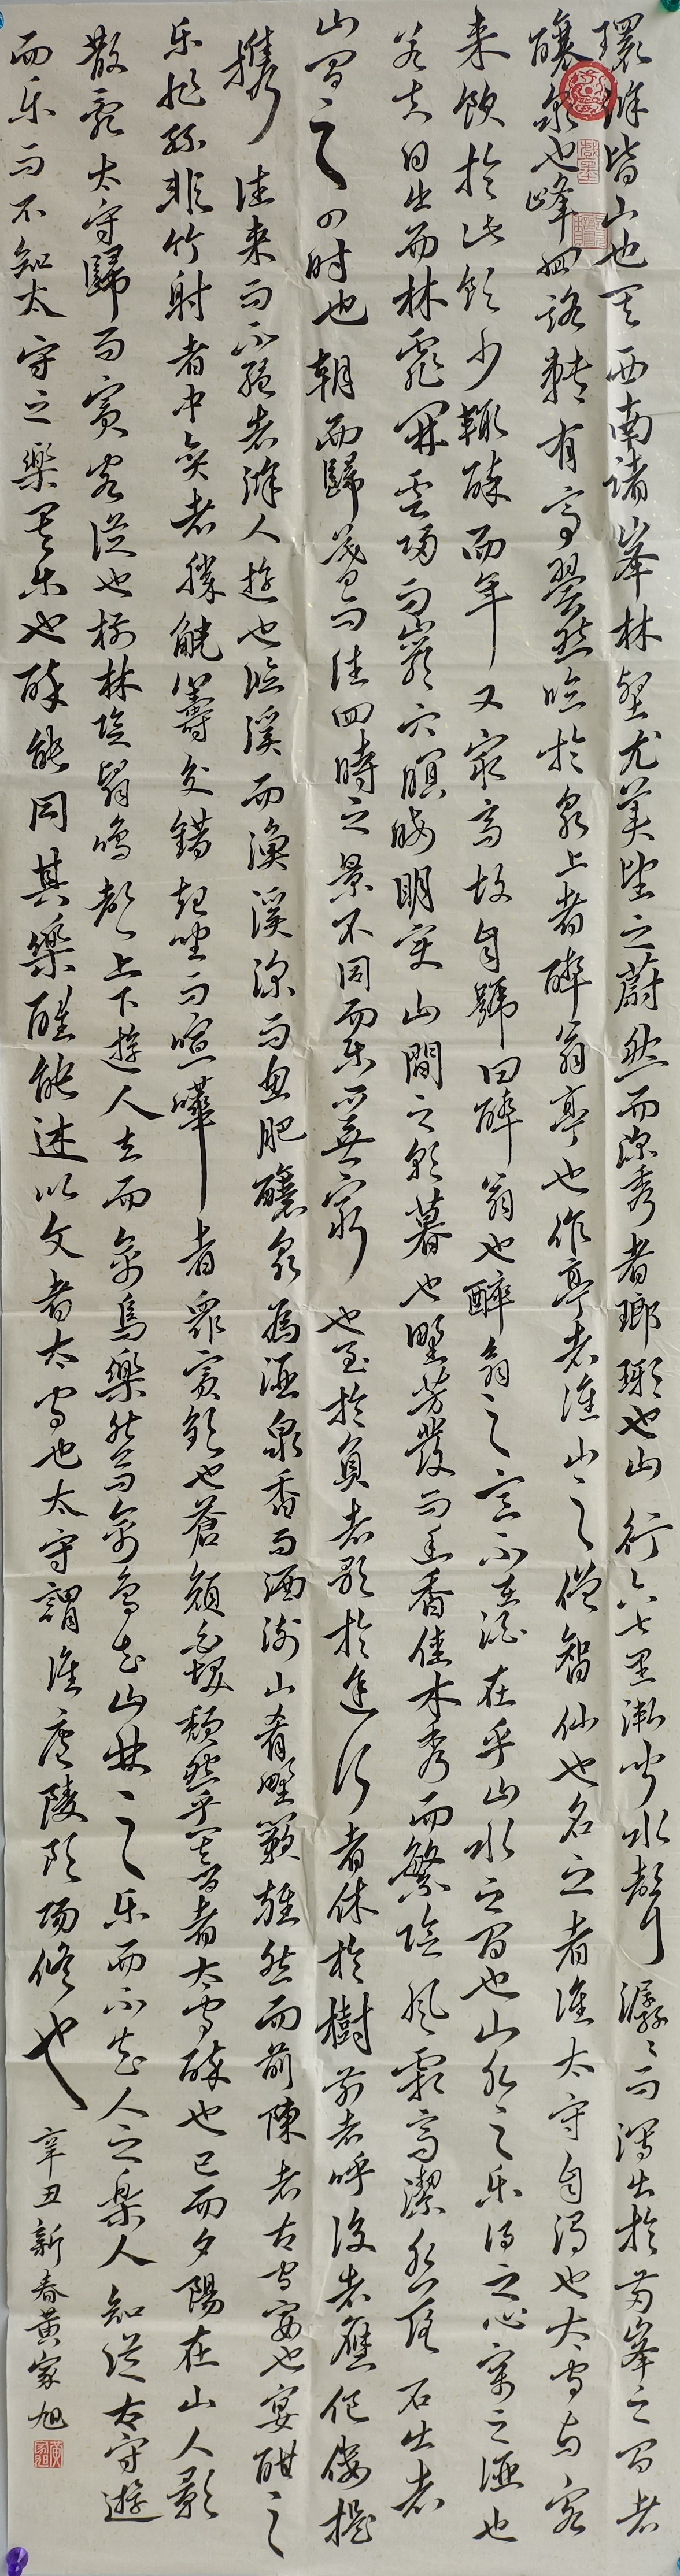 環滁皆山也其西南諸峯林壑尤美望之蔚然而深秀者瑯琊也山行六七里漸聞水聲潺々而瀉出於两峯之间者
釀泉也峰回路轉有亭翼然臨於泉上者醉翁亭也作亭者誰山之僧智仙也名之者誰太守自谓也太守与客
来飲於此飲少輒醉而年又最高故自號曰醉翁也醉翁之意不在酒在乎山水之间也山水之乐得之心寓之酒也
若夫日出而林霏開雲归而巖穴暝晦明变山間之朝暮也野芳發而幽香佳木秀而繁陰風霜高潔水落石出者
山间之四时也朝而歸暮而往四時之景不同而乐亦無窮也至於負者歌於途行者休於樹前者呼後者應伛偻提
携往来而不绝者滁人遊也临溪而漁溪深而魚肥釀泉為酒泉香而酒冽山肴野蔌雜然而前陳者太守宴也宴酣之
乐非絲非竹射者中奕者勝觥籌交錯起坐而喧嘩者眾賓歡也蒼顏白髮頹然乎其间者太守醉也已而夕陽在山人影
散亂太守歸而賓客從也樹林陰翳鳴聲上下遊人去而禽鳥樂然而禽鳥知山林之乐而不知人之樂人知從太守遊
而乐而不知太守之樂其乐也醉能同其樂醒能述以文者太守也太守謂誰庐陵欧陽修也
辛丑新春黄家旭